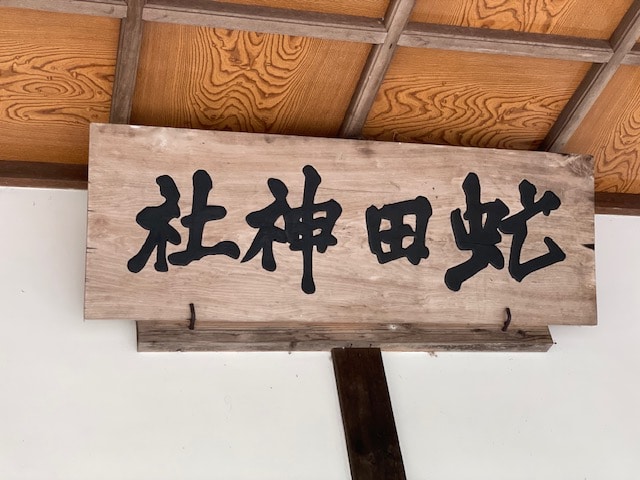 虻田神社